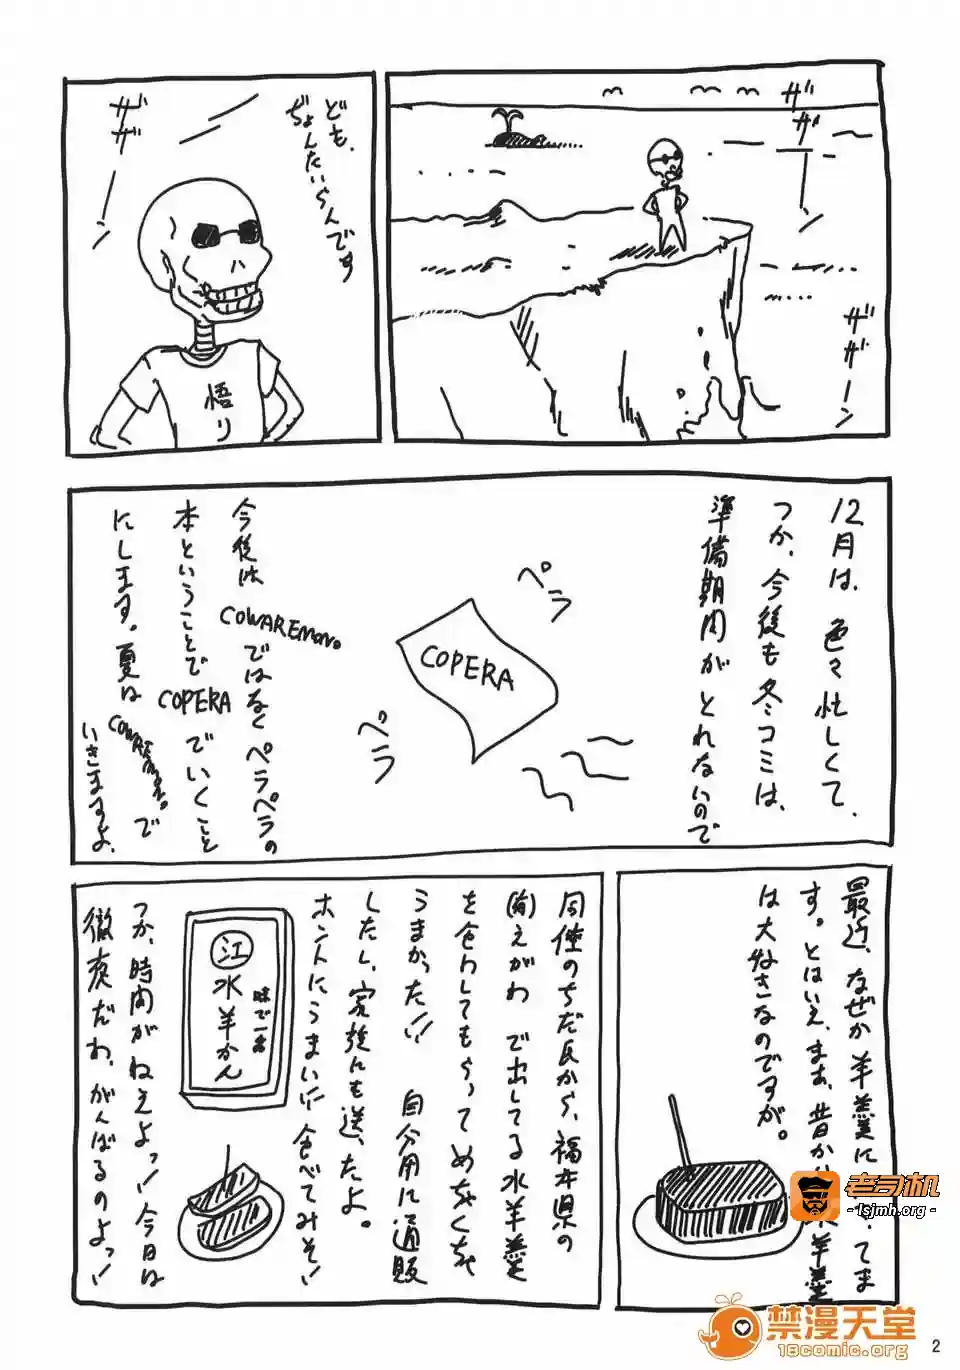 ザ
ザーン
ザザーン
ども、
ぢょんたいらんです
ザ
ザーン
悟り
12月は、色々忙しくて、
つか、今後も冬コミは、
準備期間がとれないので
ペラ
COPERA
ペラ
今後は COWAREMONO。ではなくペラペラの
本ということで COPERA でいくこと
にします。夏は で
いきますよ、
最近、なぜか羊羹に てま
す。とはいえ、まぁ、昔か 水羊羹
は大好きなのですが。
同僚のちだ氏から、福井県の
(有)えがわ で出してる水羊羹
を食わしてもらってめちゃくちゃ
うまかった!! 自分用に通販
したし、家族にも送ったよ。
ホントにうまい!! 食べてみそ!
江
味で一番
水羊かん
つか、時間がねえよっ! 今日は
徹夜だわ、がんばるのよっ!
老司机
- lsjmh.org -
禁漫天堂
18comic.org
2